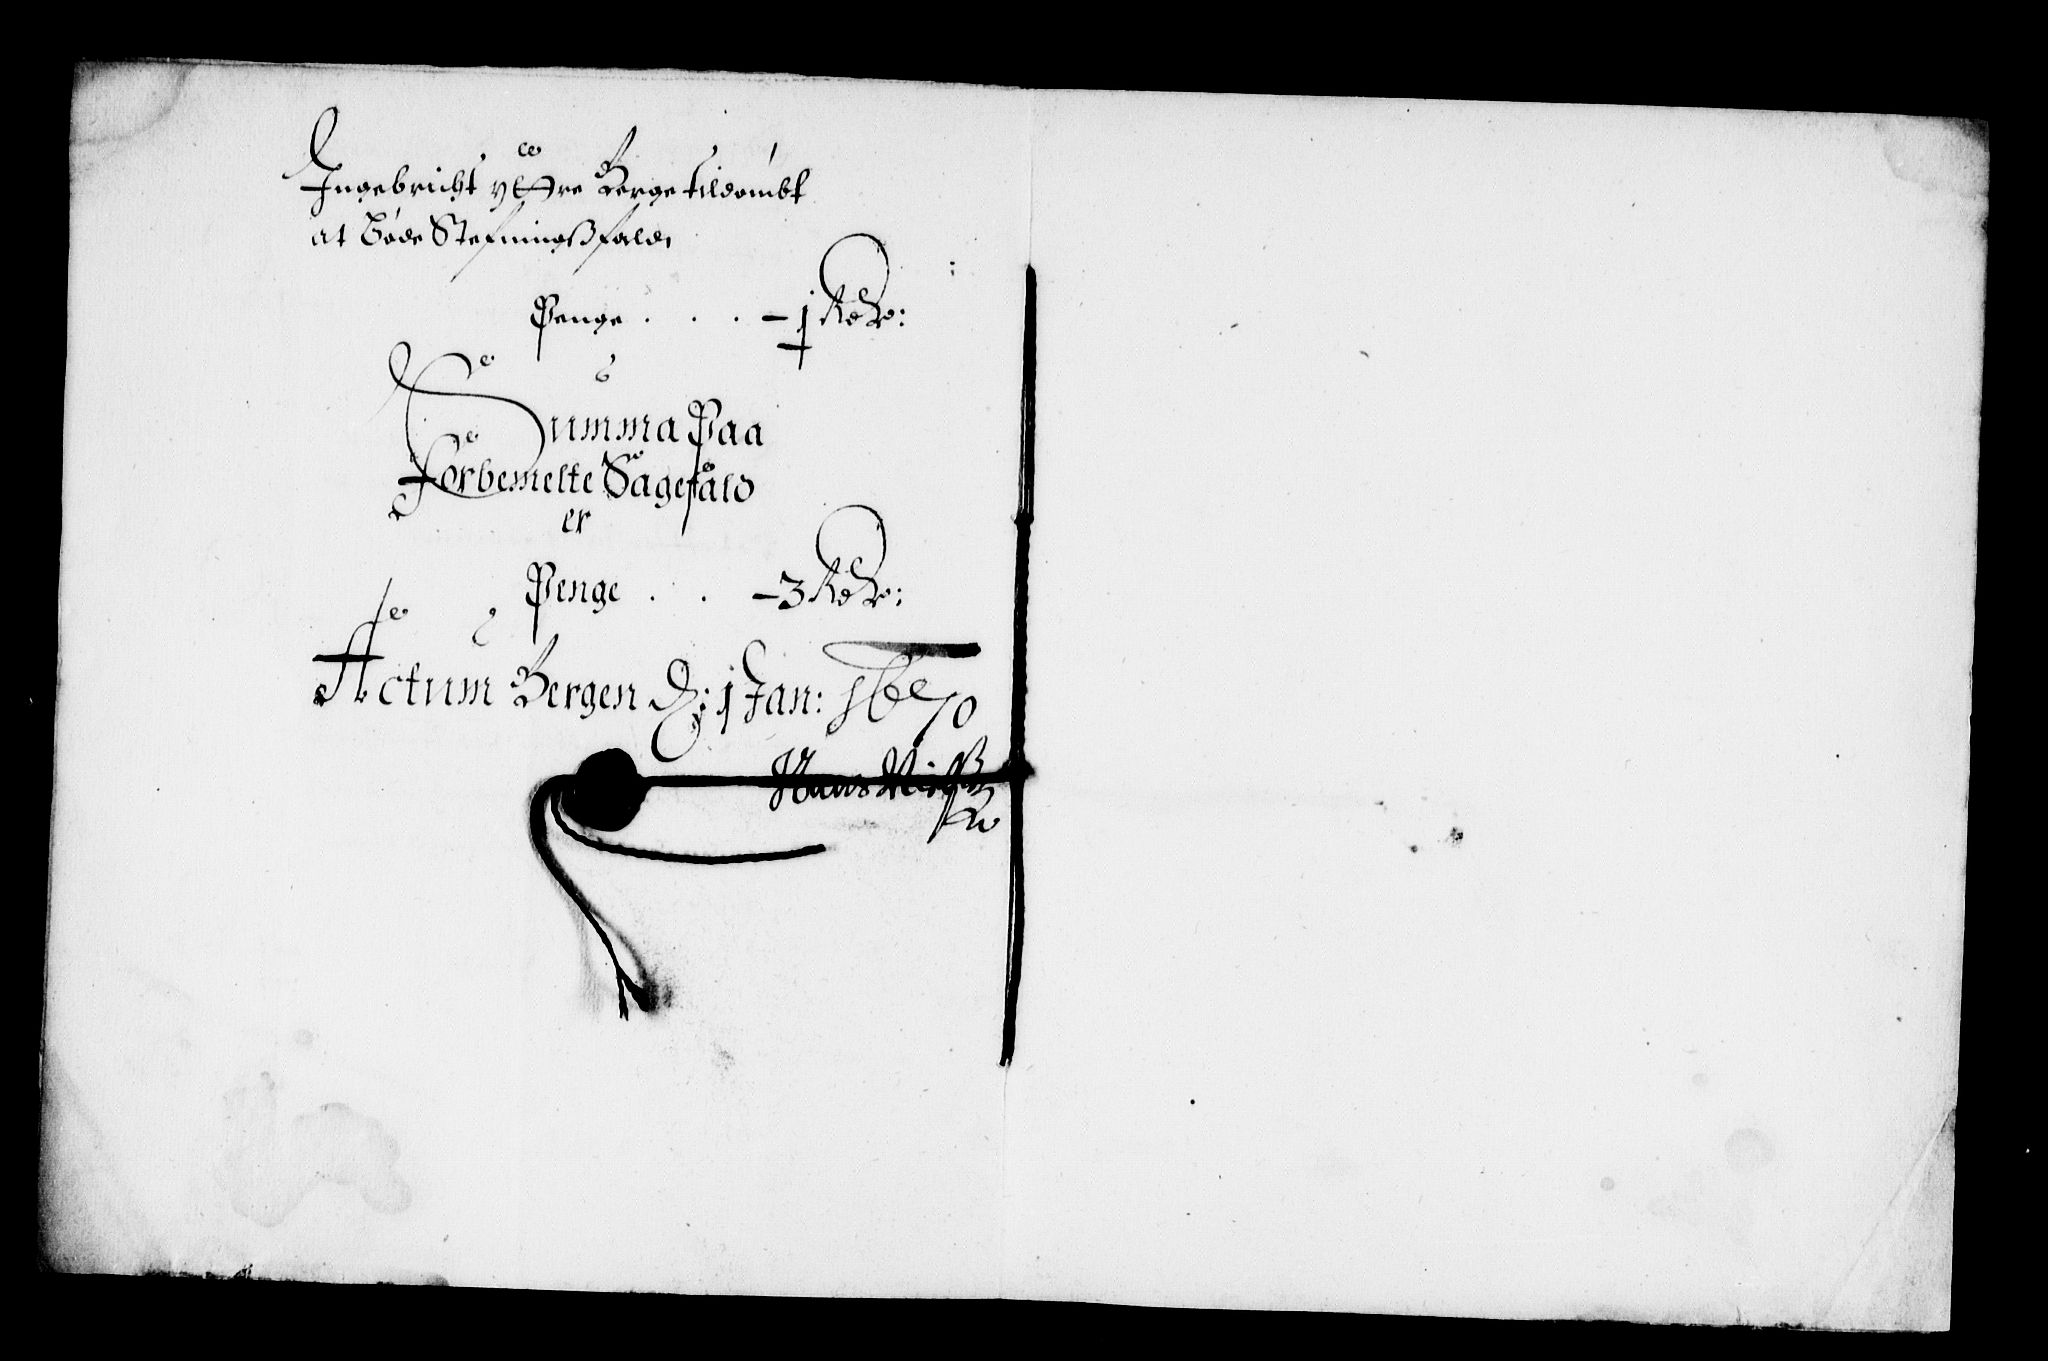 Ingebricht yttre Berge tildømbt
at Bøde Stefningsfald
Penge . . . – 1 Rdr:
Summa Paa
forbemelte Sagefald
er
Penge . . – 3 Rdr:
Actum Bergen D: 1 Jan: 1670